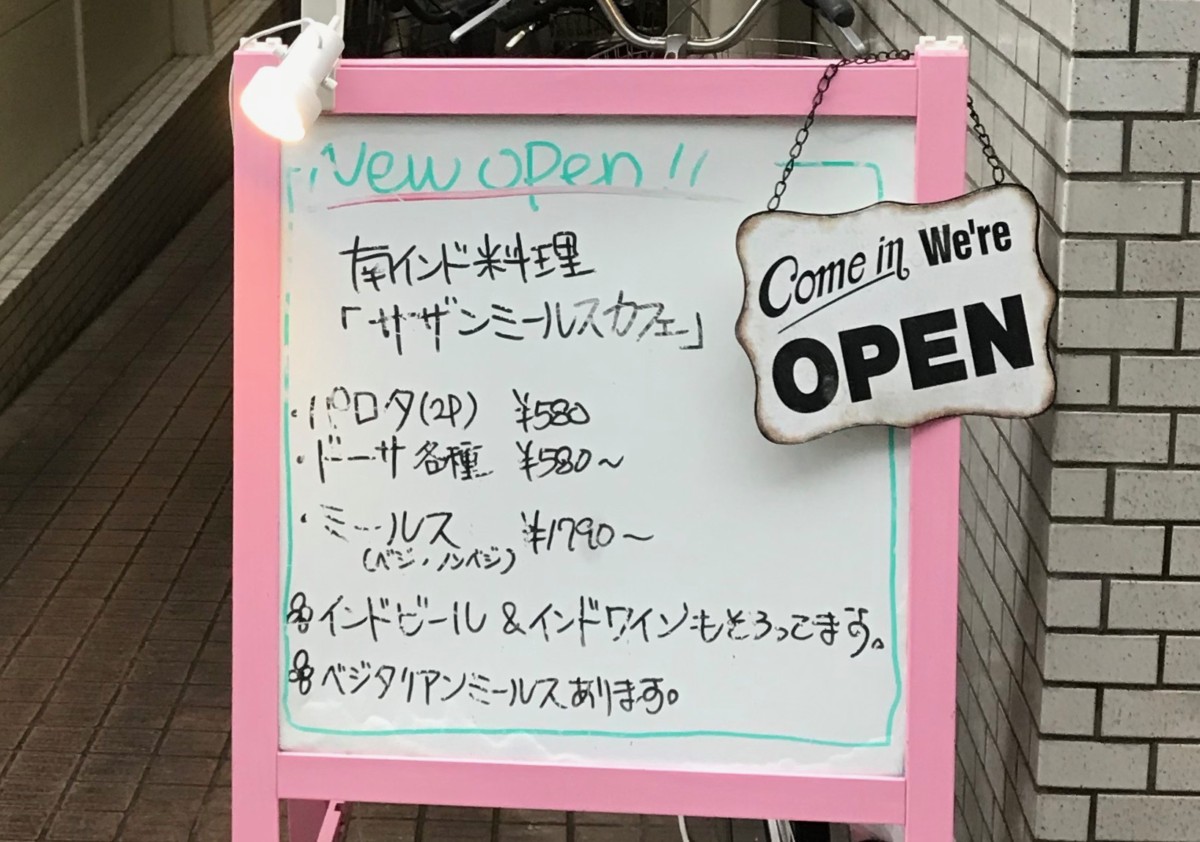 New open!!
南インド料理
「サザンミールスカフェ」
・パロタ(2P) ¥580
・ドーサ各種 ¥580～
・ミールス ¥1790～
(ベジ・ノンベジ)
インドビール &インドワインもそろってます。
ベジタリアンミールスあります。
Come in We're
OPEN